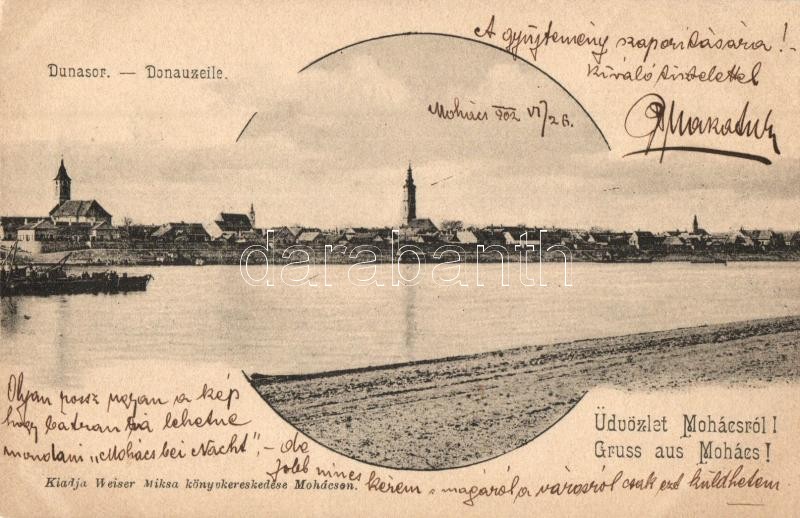 A gyűjtemény szaporitására! -
kiváló tisztelettel
Dunasor. — Donauzeile.
Mohács 902 VI/26.
darabanth
Olyan rossz ugyan a kép
hogy bátran rá lehetne
mondani „Mohács bei Nacht", - de
jobb nincs kérem - magáról a városról csak ezt küldhetem.
Üdvözlet Mohácsról!
Gruss aus Mohács!
Kiadja Weiser Miksa könyvkereskedése Mohácson.